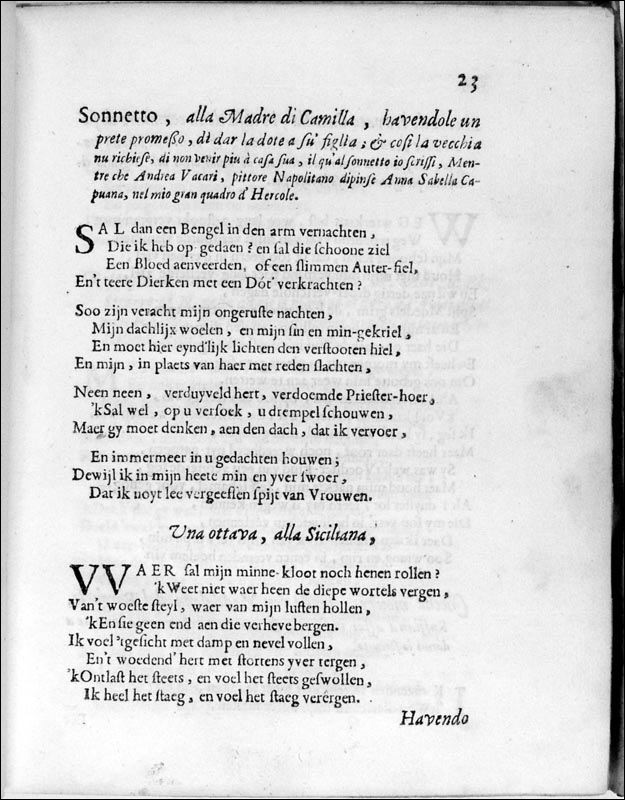 23
Sonnetto, alla Madre di Camilla, havendole un
prete promeßo, di dar la dote a su' figlia; & cosi la vecchia
nu richiese, di non venir piu à casa sua, il qu'al sonnetto io scrissi, Men-
tre che Andrea Vacari, pittore Napolitano dipinse Anna Sabella Ca-
puana, nel mio gran quadro d'Hercole.
SAL dan een Bengel in den arm vernachten,
Die ik heb op-gedaen? en sal die schoone ziel
Een Bloed aenveerden, of een slimmen Auter-fiel,
En't teere Dierken met een Dót' verkrachten?
Soo zijn veracht mijn ongeruste nachten,
Mijn dachlijx woelen, en mijn sin en min-gekriel,
En moet hier eynd'lijk lichten den verstooten hiel,
En mijn, in plaets van haer met reden slachten,
Neen neen, verduyveld hert, verdoemde Priester-hoer,
'kSal wel, op u versoek, u drempel schouwen,
Maer gy moet denken, aen den dach, dat ik vervoer,
En immermeer in u gedachten houwen;
Dewijl ik in mijn heete min en yver swoer,
Dat ik noyt lee vergeessen spijt van Vrouwen.
Una ottava, alla Siciliana,
VVAER sal mijn minne-kloot noch henen rollen?
'kWeet niet waer heen de diepe wortels vergen,
Van't woeste steyl, waer van mijn lusten hollen,
'kEn sie geen end aen die verheve bergen.
Ik voel 'tgesicht met damp en nevel vollen,
En't woedend' hert met stortens yver tergen,
'kOntlast het steets, en voel het steets geswollen,
Ik heel het staeg, en voel het staeg verérgen.
Havendo